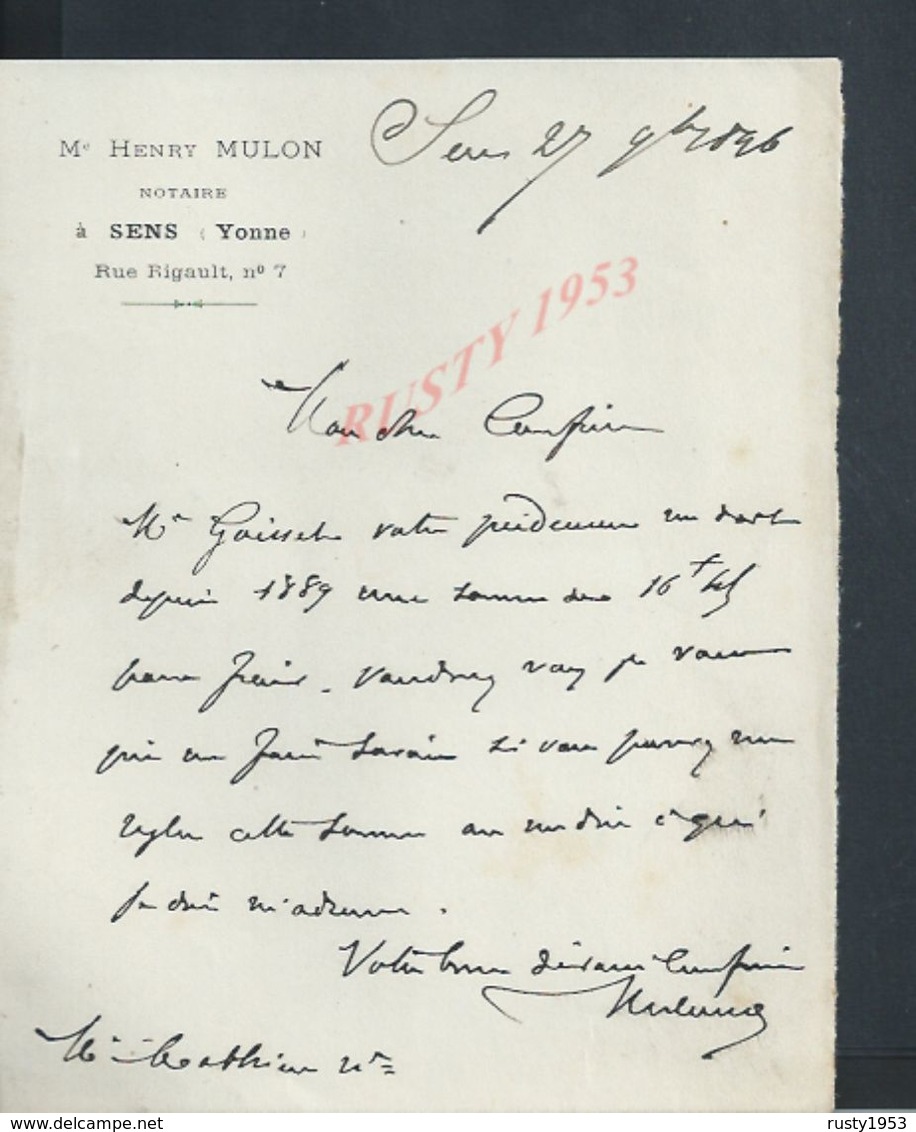 Me HENRY MULON
NOTAIRE
à SENS (Yonne)
Rue Rigault, no 7
Sens 27 9bre 1896
RUSTY 1953
Mon cher Confrère
Mr Goisset votre prédécesseur me doit
depuis 1889 une somme de 16f
pour frais. Voudrez vous je vous
prie me faire savoir si vous pouvez me
régler cette somme ou me dire à qui
je dois m'adresser.
Votre bien dévoué Confrère
Mulon
Me Mathieu nre
delcampe.net
rusty1953